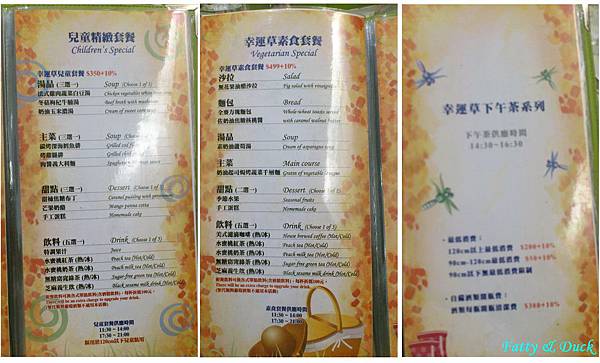 兒童精緻套餐
Children's Special
幸運草兒童套餐 $350+10%
湯品 (三選一) Soup (Choose 1 of 3)
奶油玉米濃湯 Cream of sweet corn soup
主菜 (三選一) Soup (Choose 1 of 3)
肉醬義大利麵 Spaghetti
甜點 (二選一) Dessert (Choose 1 of
甜橙焦糖布丁 Caramel pudding with
芒果奶酪 Mango panna cotta
手工蛋糕 Homemade cake
飲料 (五選一) Drink (Choose 1 of 5)
特調果汁 Juice
水蜜桃紅茶(冰) Peach tea (Hot/Cold)
水蜜桃奶茶(熱/冰) Peach milk tea (Hot/Cold)
無糖窈窕綠茶(熱/冰) Sugar-free green tea (Hot/Cold)
芝麻養生飲(熱/冰) Black sesame milk drink (Hot/Cold)
There will be an extra charge to upgrade your drink.
兒童套餐供應時間
11:30 ~ 14:00
17:30 ~ 21:00
限用於120cm以下兒童點用
幸運草素食套餐
Vegetarian Special
幸運草素食套餐 $499+10%
沙拉 Salad
無花果油醋沙拉 Fig salad with vinaigrette
麵包 Bread
全麥方塊麵包 Whole-wheat toasts served
佐奶油焦糖核桃醬 with caramel walnut butter
湯品 Soup
素奶油蘆筍湯 Cream of asparagus soup
主菜 Main course
奶油起司焗烤蔬菜千層麵 Gratin of vegetable lasagne
甜點 (二選一) Dessert (Choose 1 of
季節水果 Seasonal fruits
手工蛋糕 Homemade cake
飲料 (五選一) Drink (Choose 1 of 5)
美式濾滴咖啡 (熱/冰) House brewed coffee (Hot/Cold)
水蜜桃紅茶(冰) Peach tea (Hot/Cold)
水蜜桃奶茶(熱/冰) Peach milk tea (Hot/Cold)
無糖窈窕綠茶(熱/冰) Sugar-free green tea (Hot/Cold)
芝麻養生飲(熱/冰) Black sesame milk drink (Hot/Cold)
There will be an extra charge to upgrade your drink.
素食套餐供應時間
11:30 ~ 14:00
17:30 ~ 21:00
幸運草下午茶系列
下午茶供應時間
14:30 ~16:30
最低消費：
120cm以上最低消費 $200+10%
90cm~120cm最低消費 $50+10%
90cm以下無最低消費限制
自備酒類開瓶費：
酒類每瓶開瓶清潔費 $300+10%
Fatty & Duck